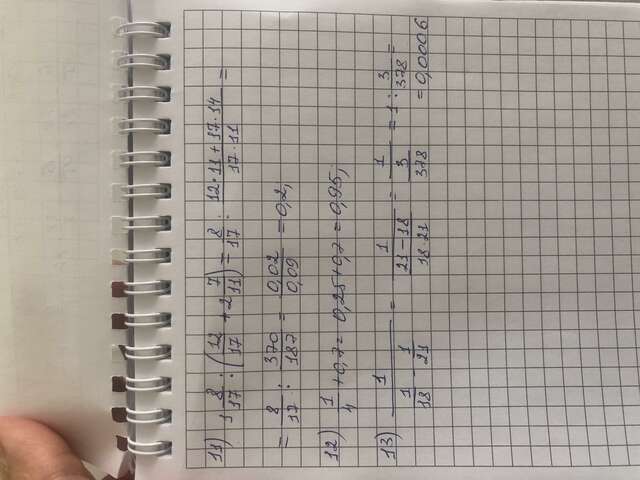 11) 1 8/17 : (12/17 + 2 7/11) = 8/17 : (12·11+17·14)/(17·11) =
= 8/17 : 370/187 = 0,02/0,09 = 0,2;
12) 1/4 + 0,7 = 0,25+0,7 = 0,95;
13) 1/(1/18 - 1/21) = 1/((21-18)/(18·21)) = 1/(3/378) = 1 : 3/378 =
= 0,0006